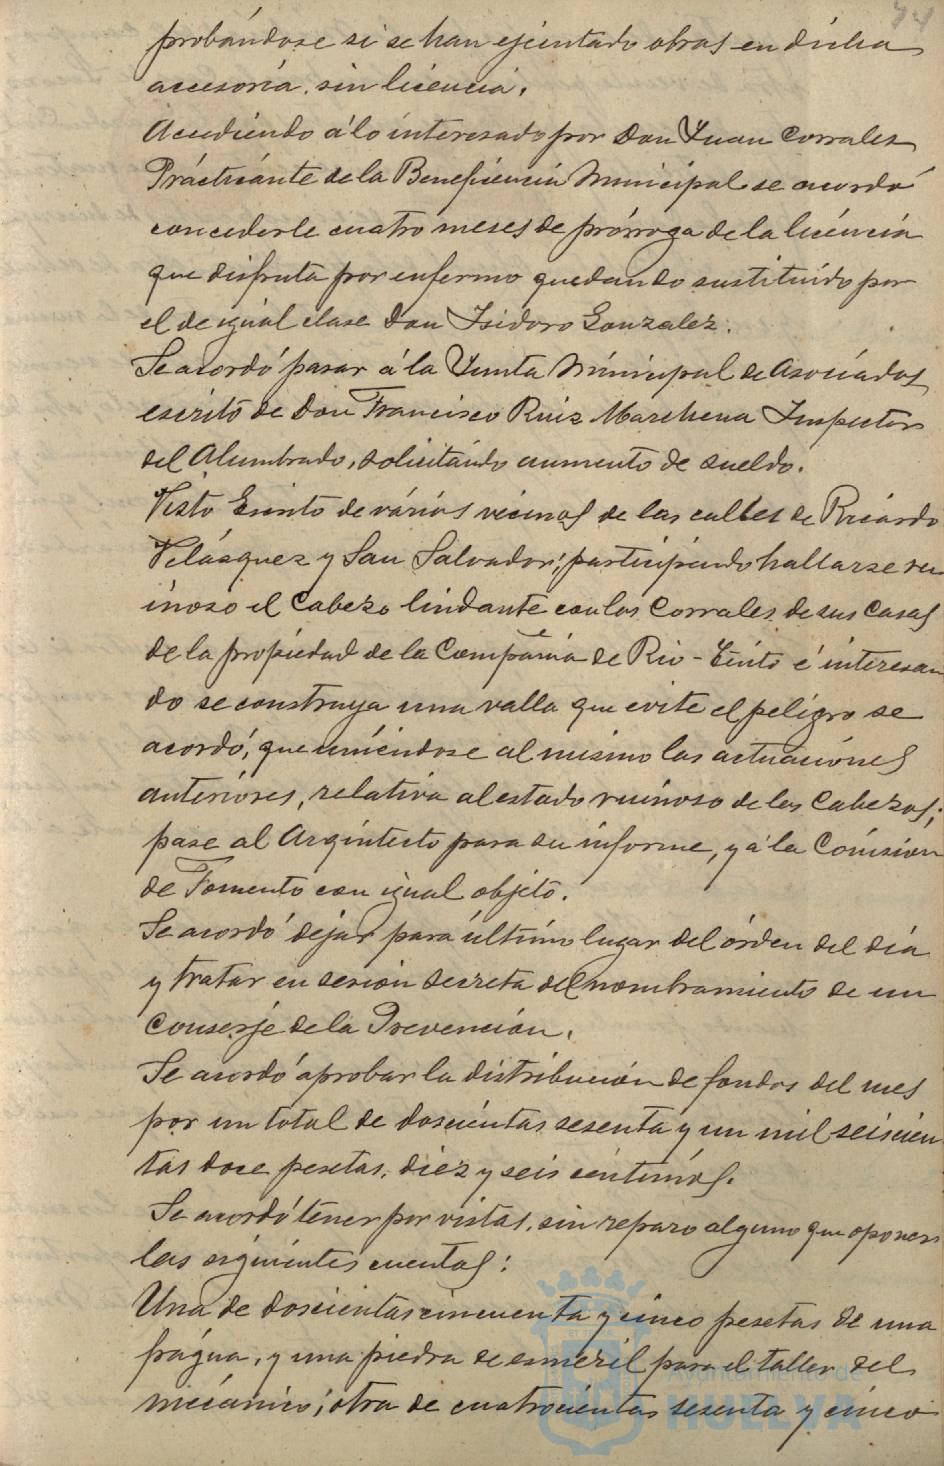 probándose si se han ejecutado obras en dicha
accesoria, sin licencia.
Accediendo á lo interesado por Don Juan Corrales
Practicante de la Beneficencia Municipal se acordó
concederle cuatro meses de prórroga de la licencia
que disfruta por enfermo quedando sustituido por
el de igual clase Don Isidoro Gonzalez.
Se acordó pasar á la Junta Municipal de Asociados
escrito de Don Francisco Ruiz Marchena Inspector
del Alumbrado, solicitando aumento de sueldo.
Visto Escrito de vários vecinos de las calles de Ricardo
Velásquez y San Salvador, participando hallarse ru
inoso el Cabezo lindante con los Corrales de sus Casas
de la propiedad de la Compañia de Rio-Tinto é interesan
do se construya una valla que evite el peligro se
acordó, que uniéndose al mismo las actuaciones
anteriores, relativa al estado ruinoso de los Cabezos;
pase al Arquitecto para su informe, y á la Comision
de Fomento con igual objeto.
Se acordó dejar para último lugar del órden del dia
y tratar en sesion secreta del nombramiento de un
Conserje de la Prevención.
Se acordó aprobar la distribución de fondos del mes
por un total de doscientas sesenta y un mil seiscien
tas doce pesetas, diez y seis centimos.
Se acordó tener por vistas, sin reparo alguno que oponer
las siguientes cuentas:
Una de doscientas cincuenta y cinco pesetas de una
frágua, y una piedra de esmeril para el taller del
mecánico; otra de cuatrocientas sesenta y cinco
Ayuntamiento de
HUELVA